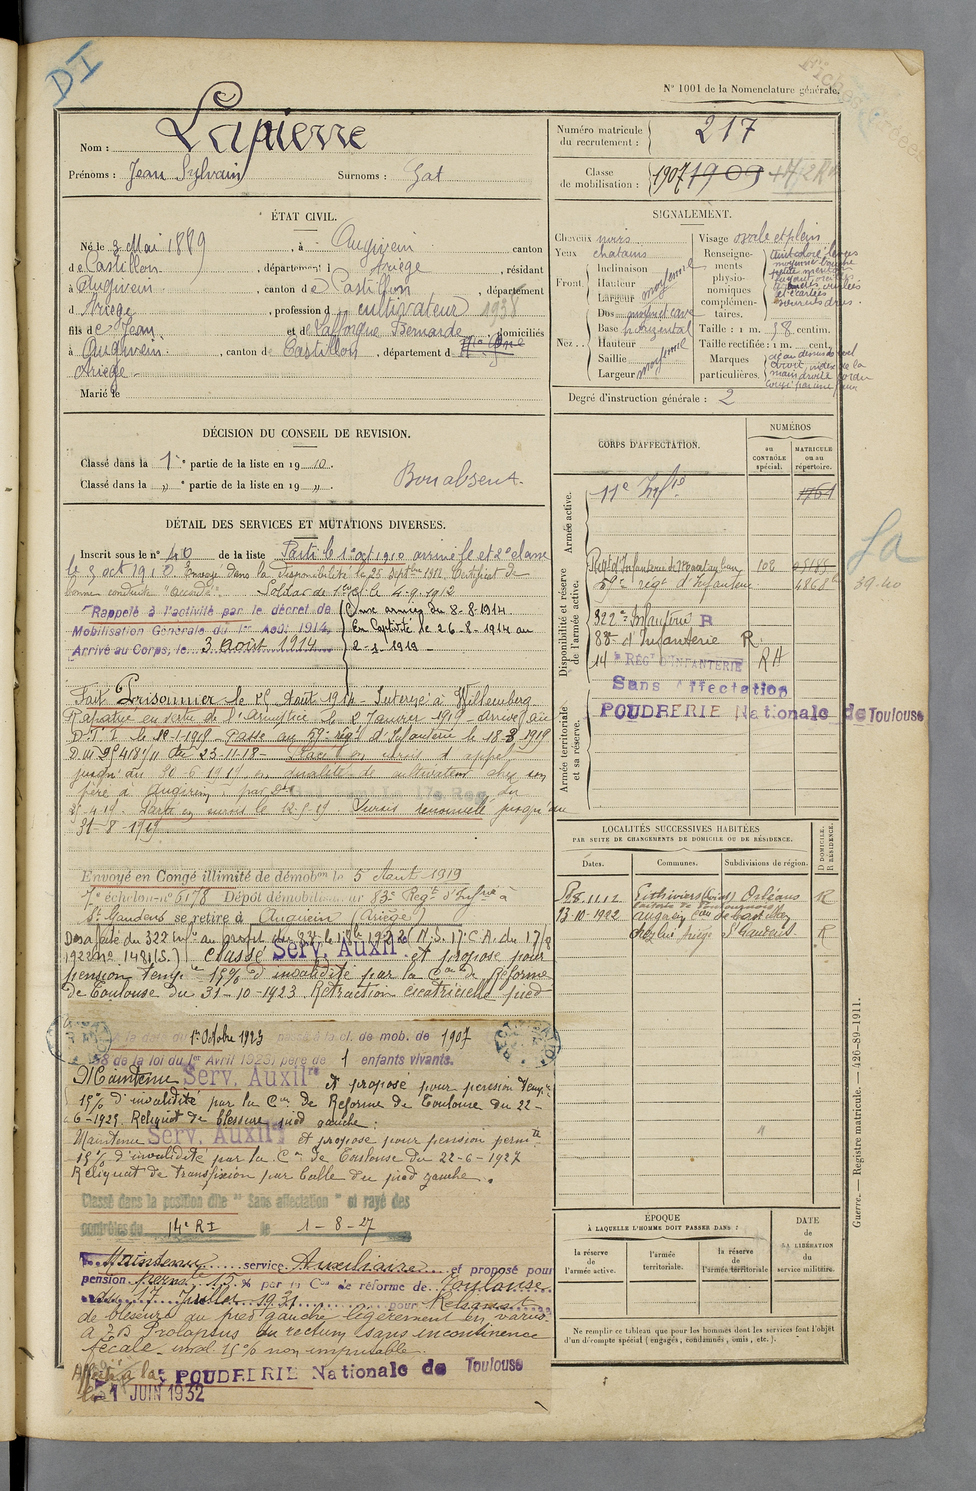 DI
N° 1001 de la Nomenclature générale.
Nom : Lapierre
Prénoms : Jean Sylvain Surnoms : Gat
Numéro matricule du recrutement : 217
Classe de mobilisation : 1907 1909
ÉTAT CIVIL.
Né le 3 Mai 1889, à Augirein canton
de Castillon, département d Ariège, résidant
à Augirein, canton de Castillon, département
d Ariège, profession de cultivateur 1938
fils de Jean et de Lafforgue Bernarde, domiciliés
à Augirein, canton de Castillon, département d
Ariège.
Marié le
SIGNALEMENT.
Cheveux noirs
Yeux chatains
Front. Inclinaison
Hauteur moyenne
Largeur
Nez. Dos
Base horizontal
Hauteur
Saillie moyenne
Largeur
Visage ovale et plein
Renseignements physionomiques complémentaires.
Taille : 1 m. 58 centim.
Taille rectifiée : 1 m. cent.
Marques particulières
Degré d'instruction générale : 2
DÉCISION DU CONSEIL DE REVISION.
Classé dans la 1re partie de la liste en 1910.
Classé dans la „ partie de la liste en 19 „.
Bon absent.
DÉTAIL DES SERVICES ET MUTATIONS DIVERSES.
Inscrit sous le n° 40 de la liste Parti le 1er oct 1910 arrivé le et 2e classe
le 3 oct 1910. Envoyé dans la disponibilité le 25 septbre 1912. Certificat de
bonne conduite "accordé". Soldat de 1re cl. le 4-9-1912
Rappelé à l'activité par le décret de
Mobilisation Générale du 1er Août 1914.
Arrivé au Corps, le 3 Août 1914
Aux armées du 8-8-1914
En Captivité le 26-8-1914 au
2-1-1919
Fait Prisonnier le 26 Août 1914 Interné à
Rapatrié en vertu de l'Armistice le 2 Janvier 1919 - arrivé au
Passé au 59e régt d'Infanterie le 18-3-1919
23-11-18 - Placé en sursis d'appel
jusqu'au 30-6-1919 en qualité de cultivateur chez son
père à Augirein par
Sursis renouvelé jusqu'au
31-8-1919
Envoyé en Congé illimité de démobon le 5 Août 1919
7e échelon n° 6178 Dépôt démobilisateur 83e Régt d'Infrie à
St Gaudens se retire à Augirein (Ariège)
Désaffecté du 322 Infie au profit du 83e le
1922 n° 1421(S.) Classé Serv. Auxilre et proposé pour
pension tempre 15% d'invalidité par la Con de Réforme
de Toulouse du 31-10-1923. Rétraction cicatricielle pied
1er Octobre 1923 passé à la cl. de mob. de 1907
58 de la loi du 1er Avril 1923) père de 1 enfants vivants.
Maintenu Serv. Auxilre et proposé pour pension tempre
15% d'invalidité par la Con de Réforme de Toulouse du 22-
6-1925. Reliquat de blessure pied gauche.
Maintenu Serv. Auxilre et proposé pour pension permte
15% d'invalidité par la Con de Toulouse du 22-6-1927
Reliquat de transfixion par balle du pied gauche.
Classé dans la position dite "Sans affectation" et rayé des
contrôles du 14e RI le 1-8-27
Maintenu service Auxiliaire et proposé pour
pension permte 15 % par la Con de réforme de Toulouse
du 17 Juillet 1931 pour Reliquat
de blessure du pied gauche légèrement en varus.
à 2° Prolapsus du rectum sans incontinence
fécale - inval. 15% non imputable.
Affecté à la POUDRERIE Nationale de Toulouse
le 1 JUIN 1932
CORPS D'AFFECTATION.
NUMÉROS
au CONTRÔLE spécial.
MATRICULE ou au répertoire.
Armée active.
11e Infie 1761
Disponibilité et réserve de l'armée active.
Régt d'Infanterie de Montauban 102
59e régt d'Infanterie 4868
322e Infanterie R
83e d'Infanterie R
14e RÉGT D'INFANTERIE RA
Sans Affectation
POUDRERIE Nationale de Toulouse
Armée territoriale et sa réserve.
39.40
LOCALITÉS SUCCESSIVES HABITÉES
PAR SUITE DE CHANGEMENTS DE DOMICILE OU DE RÉSIDENCE.
Dates.
Communes.
Subdivisions de région.
D DOMICILE. R RÉSIDENCE.
Pithiviers (Loiret) Orléans R
13-10-1922 Augirein Con de Castillon
St Gaudens R
ÉPOQUE
À LAQUELLE L'HOMME DOIT PASSER DANS :
la réserve de l'armée active.
l'armée territoriale.
la réserve de l'armée territoriale
DATE de LA LIBÉRATION du service militaire.
Ne remplir ce tableau que pour les hommes dont les services font l'objet
d'un décompte spécial (engagés, condamnés, omis, etc.).
Guerre. — Registre matricule. — 426-89-1911.